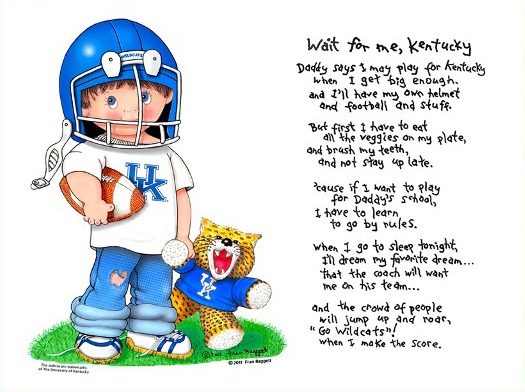 Wait for me, Kentucky
Daddy says I may play for Kentucky
when I get big enough.
and I'll have my own helmet
and football and stuff.
But first I have to eat
all the veggies on my plate,
and brush my teeth,
and not stay up late.
'cause if I want to play
for Daddy's school,
I have to learn
to go by rules.
when I go to sleep tonight,
I'll dream my favorite dream...
that the coach will want
me on his team...
and the crowd of people
will jump up and roar,
"Go Wildcats"!
when I make the score.
WILDCATS
UK
UK
The indicia are trademarks
of The University of Kentucky
© 2011 Fran Baggett